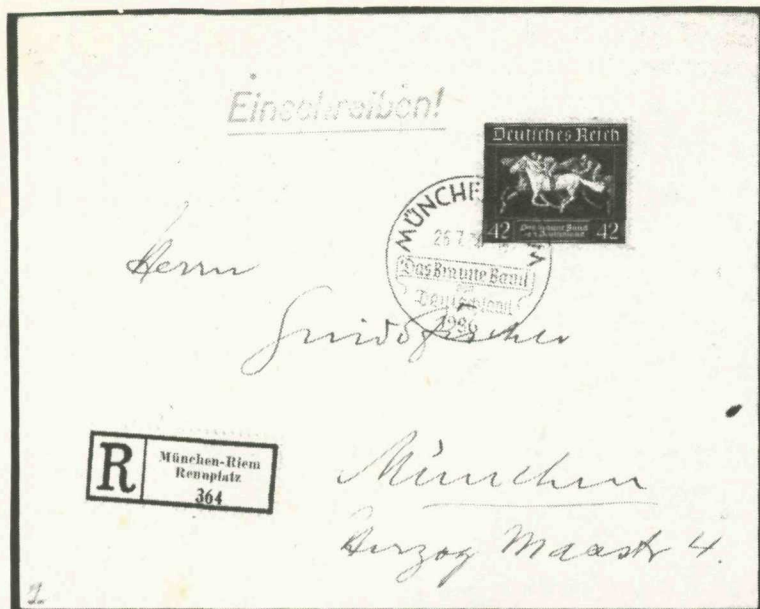 Einschreiben!
Deutsches Reich
42 Das Braune Band 42
von Deutschland
MÜNCHEN
26.7.
Das Braune Band
von
Deutschland
1936
Herrn
Guido Fischer
R
München-Riem
Rennplatz
364
München
Herzog Maxstr 4.